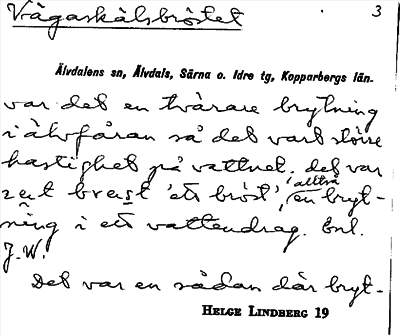 Vågaskålsbröstet
3
Älvdalens sn, Älvdals, Särna o. Idre tg, Kopparbergs län.
var det en tvärare brytning
i älvfåran så det vart större
hastighet på vattnet. det var
breust 'ett bröst', alltså en bryt-
ning i ett vattendrag. Enl.
J. W.
Det var en sådan där bryt-
HELGE LINDBERG 19